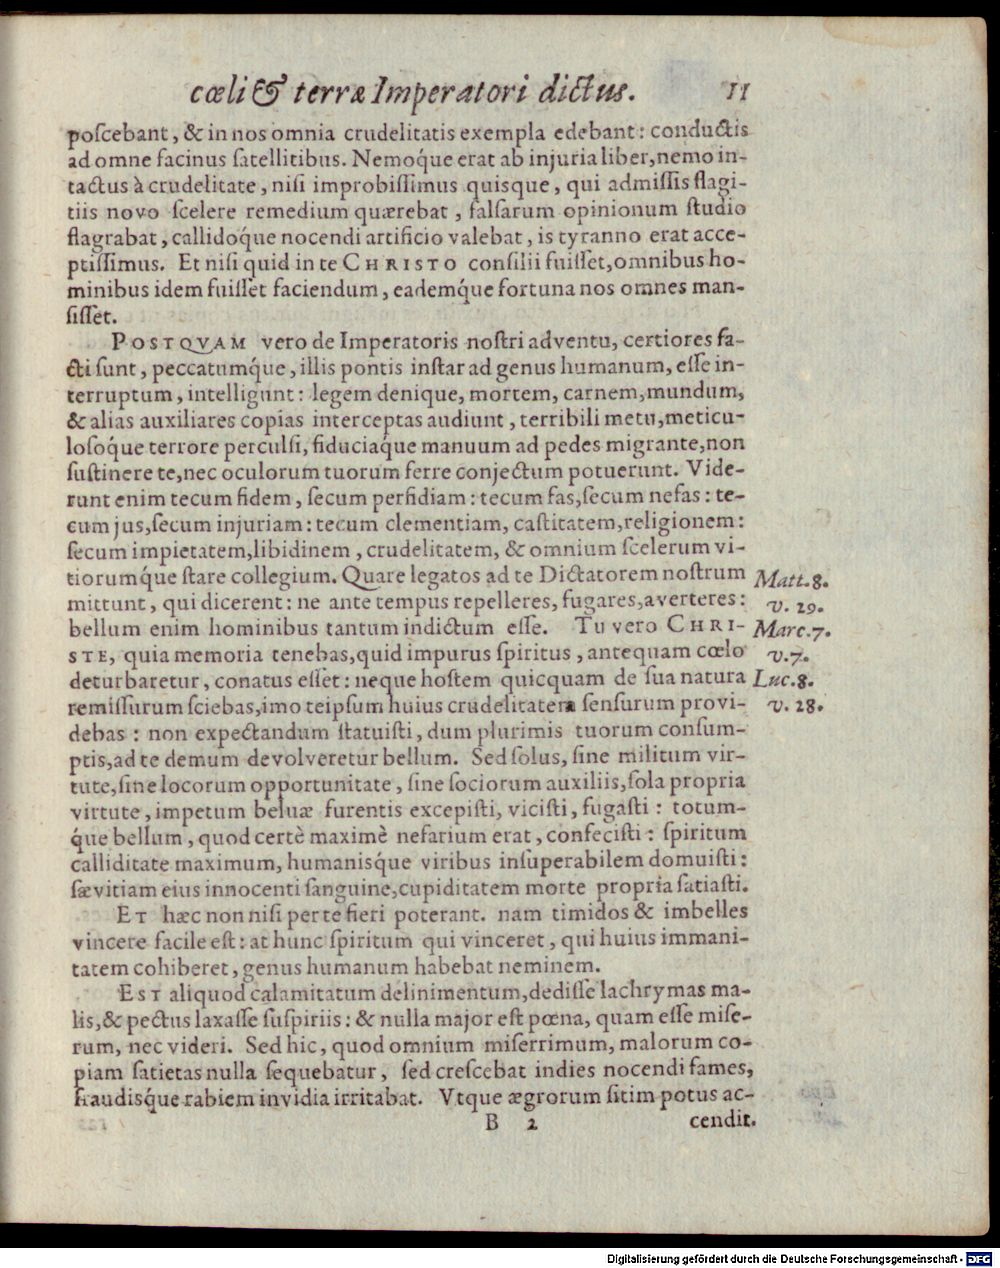 cœli & terræ Imperatori dictus. 11
poſcebant, & in nos omnia crudelitatis exempla edebant: conductis
ad omne facinus ſatellitibus. Nemoq́ue erat ab injuria liber, nemo in-
tactus à crudelitate, niſi improbiſſimus quisque, qui admiſſis flagi-
tiis novo ſcelere remedium quærebat, falſarum opinionum ſtudio
flagrabat, callidoq́ue nocendi artificio valebat, is tyranno erat acce-
ptiſſimus. Et niſi quid in te CHRISTO conſilii fuiſſet, omnibus ho-
minibus idem fuiſſet faciendum, eademq́ue fortuna nos omnes man-
ſiſſet.
POSTQVAM vero de Imperatoris noſtri adventu, certiores fa-
cti ſunt, peccatumq́ue, illis pontis inſtar ad genus humanum, eſſe in-
terruptum, intelligunt: legem denique, mortem, carnem, mundum,
& alias auxiliares copias interceptas audiunt, terribili metu, meticu-
loſoq́ue terrore perculſi, fiduciaq́ue manuum ad pedes migrante, non
ſuſtinere te, nec oculorum tuorum ferre conjectum potuerunt. Vide-
runt enim tecum fidem, ſecum perfidiam: tecum fas, ſecum nefas: te-
cum jus, ſecum injuriam: tecum clementiam, caſtitatem, religionem:
ſecum impietatem, libidinem, crudelitatem, & omnium ſcelerum vi-
tiorumq́ue ſtare collegium. Quare legatos ad te Dictatorem noſtrum
mittunt, qui dicerent: ne ante tempus repelleres, fugares, averteres:
bellum enim hominibus tantum indictum eſſe. Tu vero CHRI-
STE, quia memoria tenebas, quid impurus ſpiritus, antequam cœlo
deturbaretur, conatus eſſet: neque hoſtem quicquam de ſua natura
remiſſurum ſciebas, imo teipſum huius crudelitatem ſenſurum provi-
debas: non expectandum ſtatuiſti, dum plurimis tuorum conſum-
ptis, ad te demum devolveretur bellum. Sed ſolus, ſine militum vir-
tute, ſine locorum opportunitate, ſine ſociorum auxiliis, ſola propria
virtute, impetum beluæ furentis excepiſti, viciſti, fugaſti: totum-
q́ue bellum, quod certè maximè nefarium erat, confeciſti: ſpiritum
calliditate maximum, humanisq́ue viribus inſuperabilem domuiſti:
ſævitiam eius innocenti ſanguine, cupiditatem morte propria ſatiaſti.
ET hæc non niſi per te fieri poterant. nam timidos & imbelles
vincere facile eſt: at hunc ſpiritum qui vinceret, qui huius immani-
tatem cohiberet, genus humanum habebat neminem.
EST aliquod calamitatum delinimentum, dediſſe lachrymas ma-
lis, & pectus laxaſſe ſuſpiriis: & nulla major eſt pœna, quam eſſe miſe-
rum, nec videri. Sed hic, quod omnium miſerrimum, malorum co-
piam ſatietas nulla ſequebatur, ſed creſcebat indies nocendi fames,
fraudisq́ue rabiem invidia irritabat. Vtque ægrorum ſitim potus ac-
B 2 cendit.
Matt. 8.
v. 29.
Marc. 7.
v. 7.
Luc. 8.
v. 28.
Digitalisierung gefördert durch die Deutsche Forschungsgemeinschaft - DFG